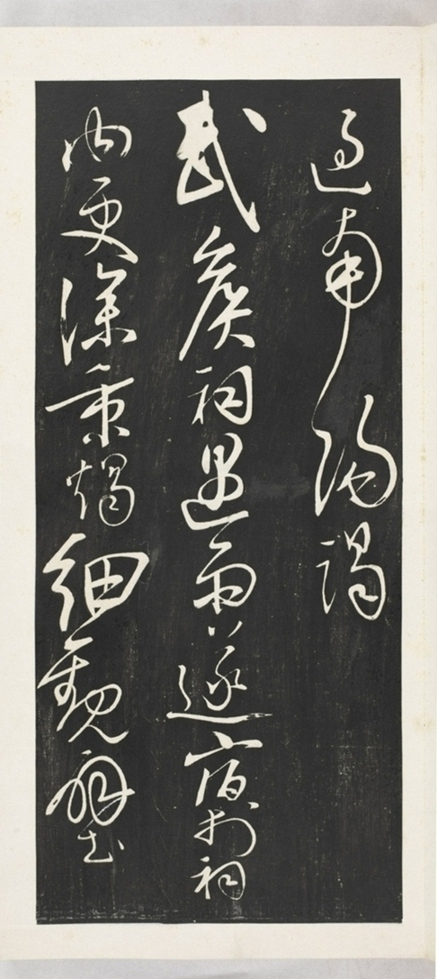 過南陽謁
武侯祠遇雨遂宿於祠
內更深秉燭細觀壁